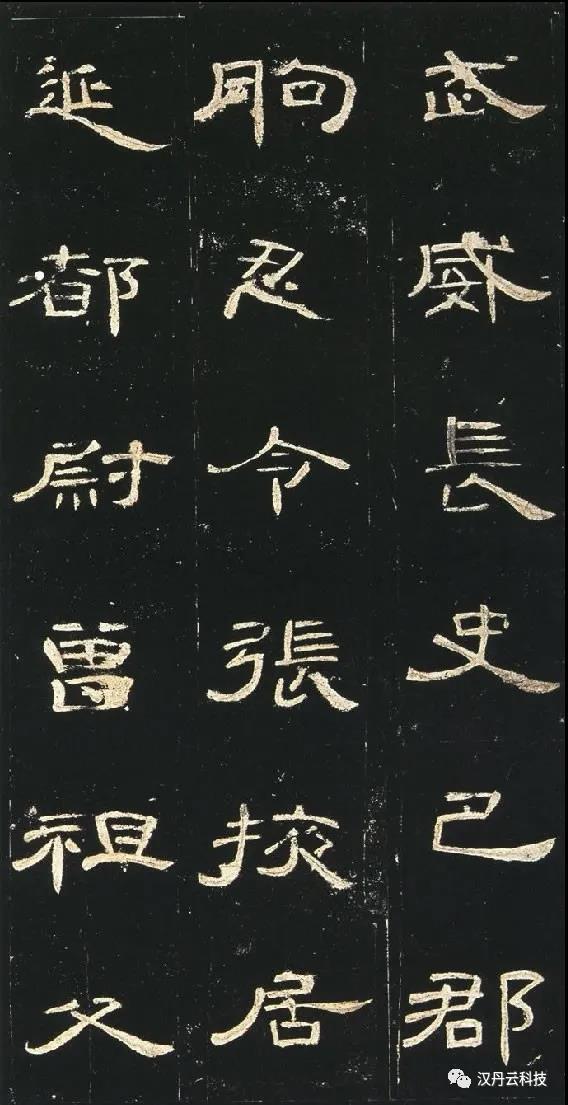 武威長史巴郡
朐忍令張掖居
延都尉曾祖父
汉丹云科技